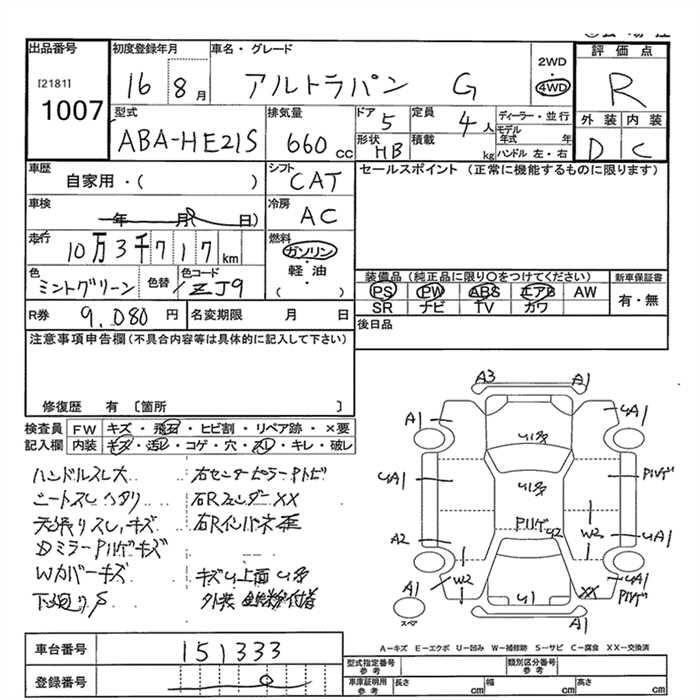 出品番号
[2181]
1007
初度登録年月
16 8月
車名・グレード
アルトラパン G
2WD
4WD
評価点
R
外装 内装
D C
型式
ABA-HE21S
排気量
660 cc
ドア
5
定員
4人
形状
HB
積載
kg
ディーラー・並行
モデル年式 年
ハンドル 左・右
車歴
自家用・( )
シフト
CAT
セールスポイント (正常に機能するものに限ります)
車検
年 月( 日)
冷房
AC
走行
10万3千717km
燃料
ガソリン
・
軽油
( )
色
ミントグリーン
色替
色コード
ZJ9
装備品 (純正品に限り〇をつけてください)
PS PW ABS エアB AW
SR ナビ TV カワ
新車保証書
有・無
R券
9.080円
名変期限 月 日
後日品
注意事項申告欄(不具合内容等は具体的に記入して下さい)
修復歴 有 〔箇所 〕
検査員記入欄
FW キズ・飛石・ヒビ割・リペア跡・×要
内装 キズ・汚レ・コゲ・穴・スレ・キレ・破レ
ハンドルスレ大
シートスレ ヘタリ
天張りスレ、キズ
Dミラー P ハゲ キズ
Wカバーキズ
下廻りS
右センターピラー
右Rフェンダー XX
右Rインパネ
キズU上面 U多
外装
A3
A1
A1
UA1
U多
UA1
PハゲU多
PハゲU2
A2
W2
UA1
A1
W2
XX
UA1
Pハゲ
U1
A1
スペア
A−キズ E−エクボ U−凹み W−補修跡 S−サビ C−腐食 XX−交換済
車台番号
151333
登録番号
型式指定番号
参考
類別区分番号
参考
車庫証明用
参考
長さ cm
幅 cm
高さ cm